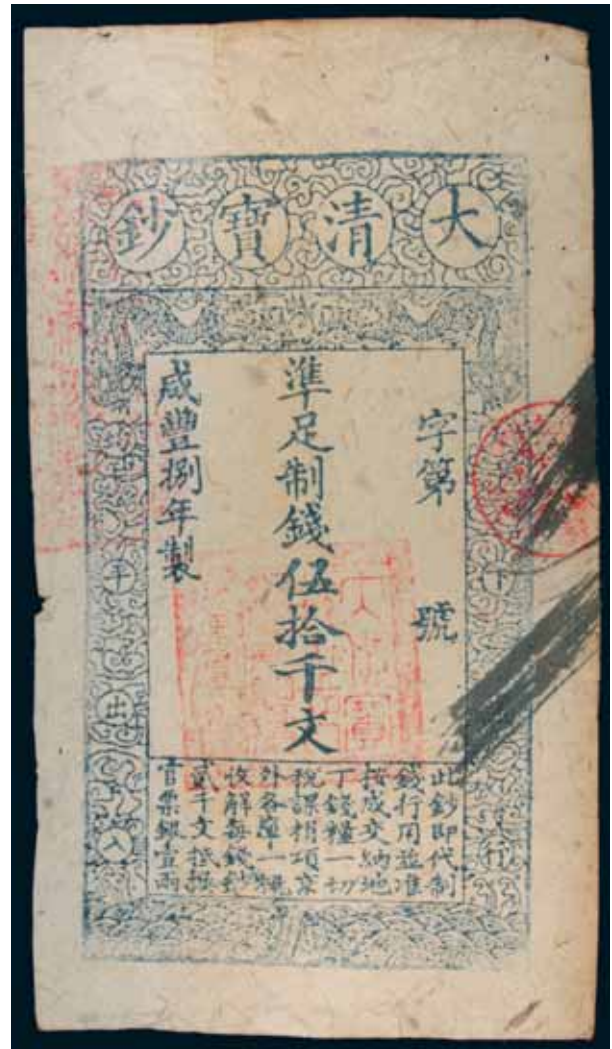 大清寶鈔
字第 號
準足制錢伍拾千文
咸豐捌年製
下 行
平出入
此鈔即代制
錢行用並准
按成交納地
丁錢糧一切
稅課捐項京
外各庫一概
收解每錢鈔
貳千文抵換
官票銀壹兩